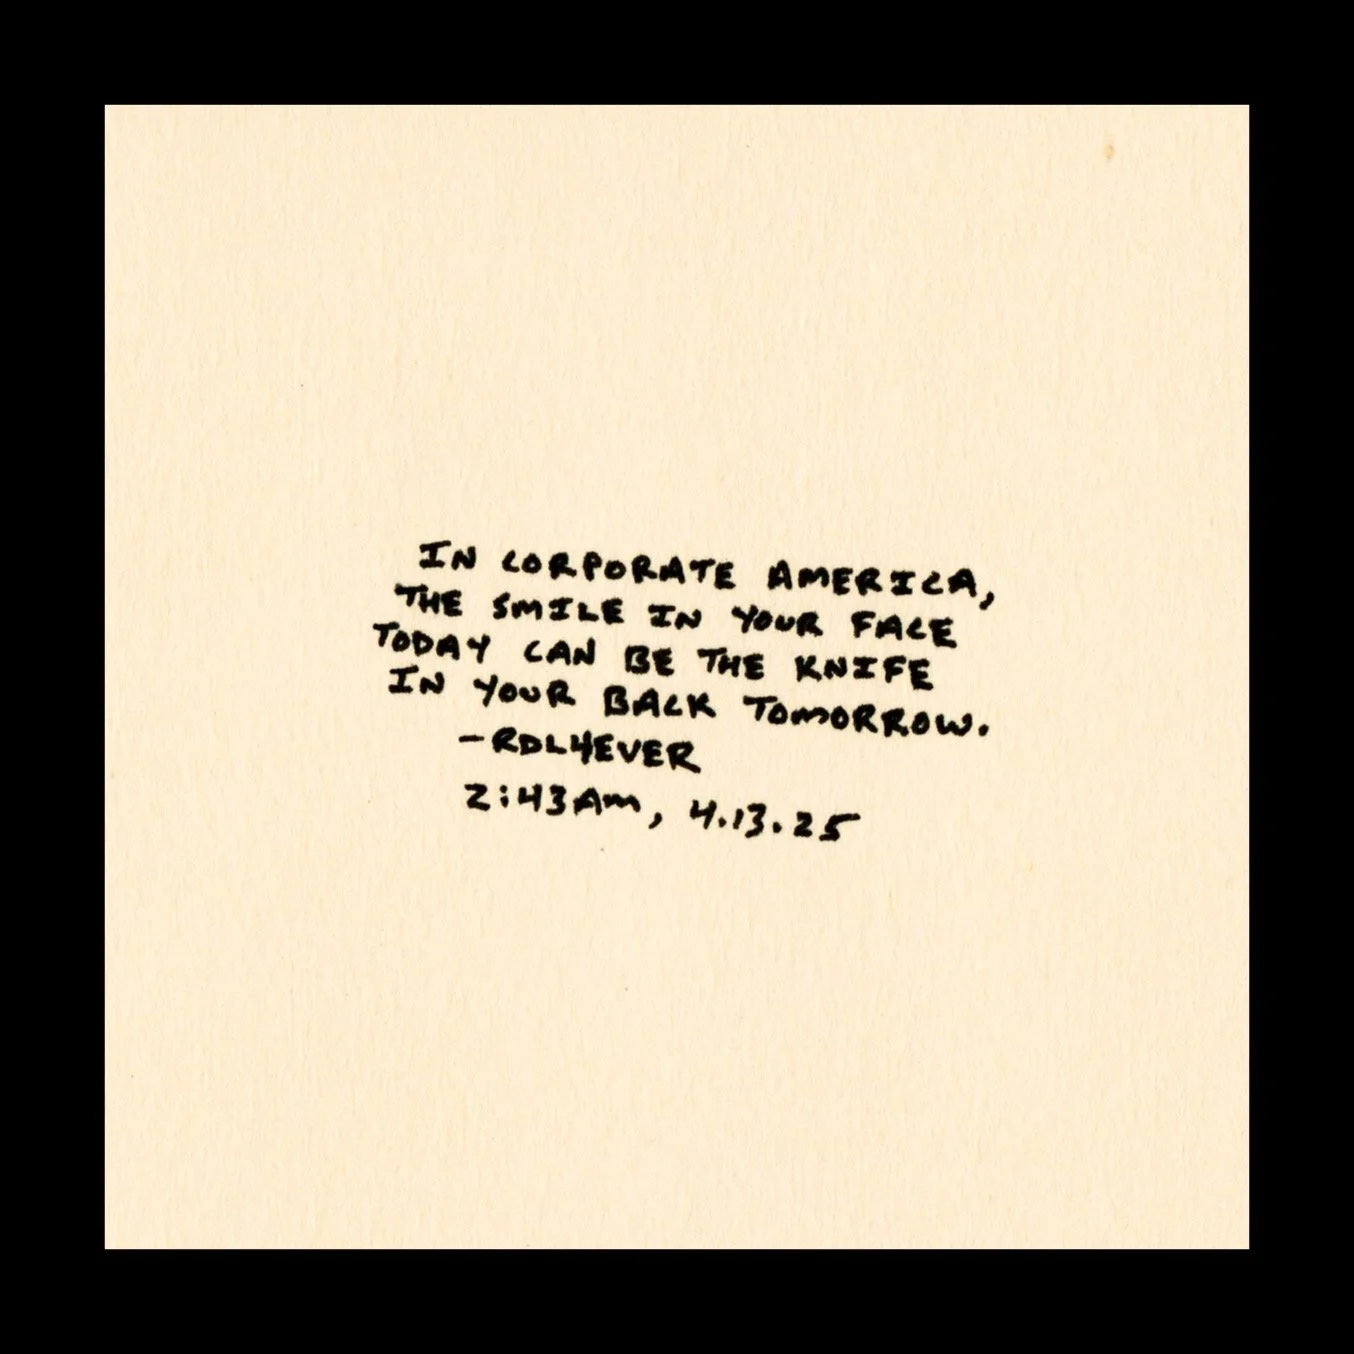 IN CORPORATE AMERICA,
THE SMILE IN YOUR FACE
TODAY CAN BE THE KNIFE
IN YOUR BACK TOMORROW.
-RDL4EVER
2:43AM, 4.13.25